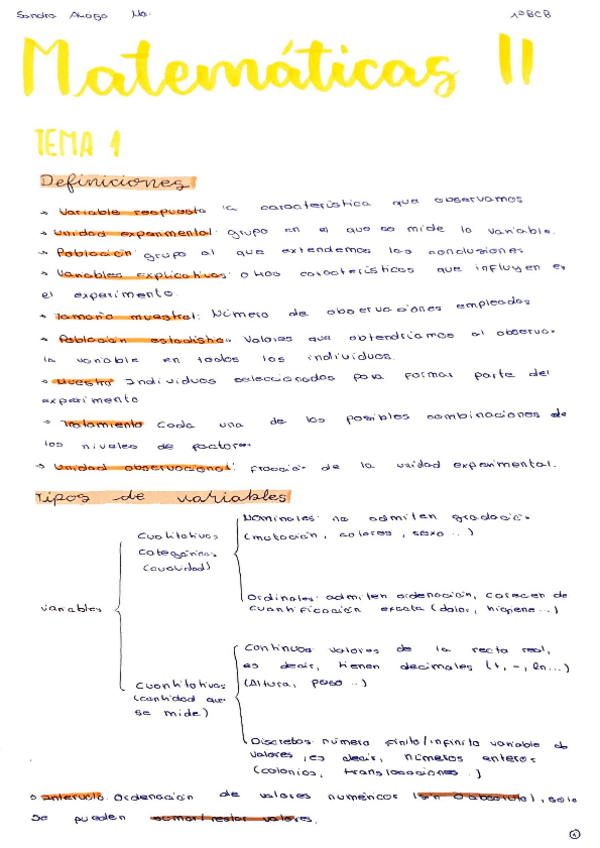 Sandra 1ºBCB
Matemáticas II
TEMA 1
Definiciones
→ Variable respuesta la característica que observamos
→ unidad experimental: grupo en el que se mide la variable.
→ Población: grupo al que extendemos las conclusiones
→ Variables explicativas: otras características que influyen en
el experimento.
→ Tamaño muestral: Número de observaciones empleadas
→ Población estadística: Valores que obtendríamos al observar
la variable en todos los individuos.
→ Muestra Individuos seleccionados para formar parte del
experimento
→ Tratamiento Cada una de las posibles combinaciones de
los niveles de factores
→ Unidad observacional: fracción de la unidad experimental.
Tipos de variables
variables
Cualitativas
categóricas
(cualidad)
Nominales: no admiten gradación
(mutación, colores, sexo..)
Ordinales: admiten ordenación, carecen de
cuantificación exacta (dolor, higiene...)
Cuantitativas
(cantidad que
se mide)
Continuas valores de la recta real,
es decir, tienen decimales (+, -, ln...)
(Altura, peso..)
Discretas: número finito/infinito variable de
valores, es decir, números enteros
(colonias, translocaciones..)
→ intervalo. Ordenación de valores numéricos (sin 0 absoluto), solo
se pueden sumar/restar valores.
1